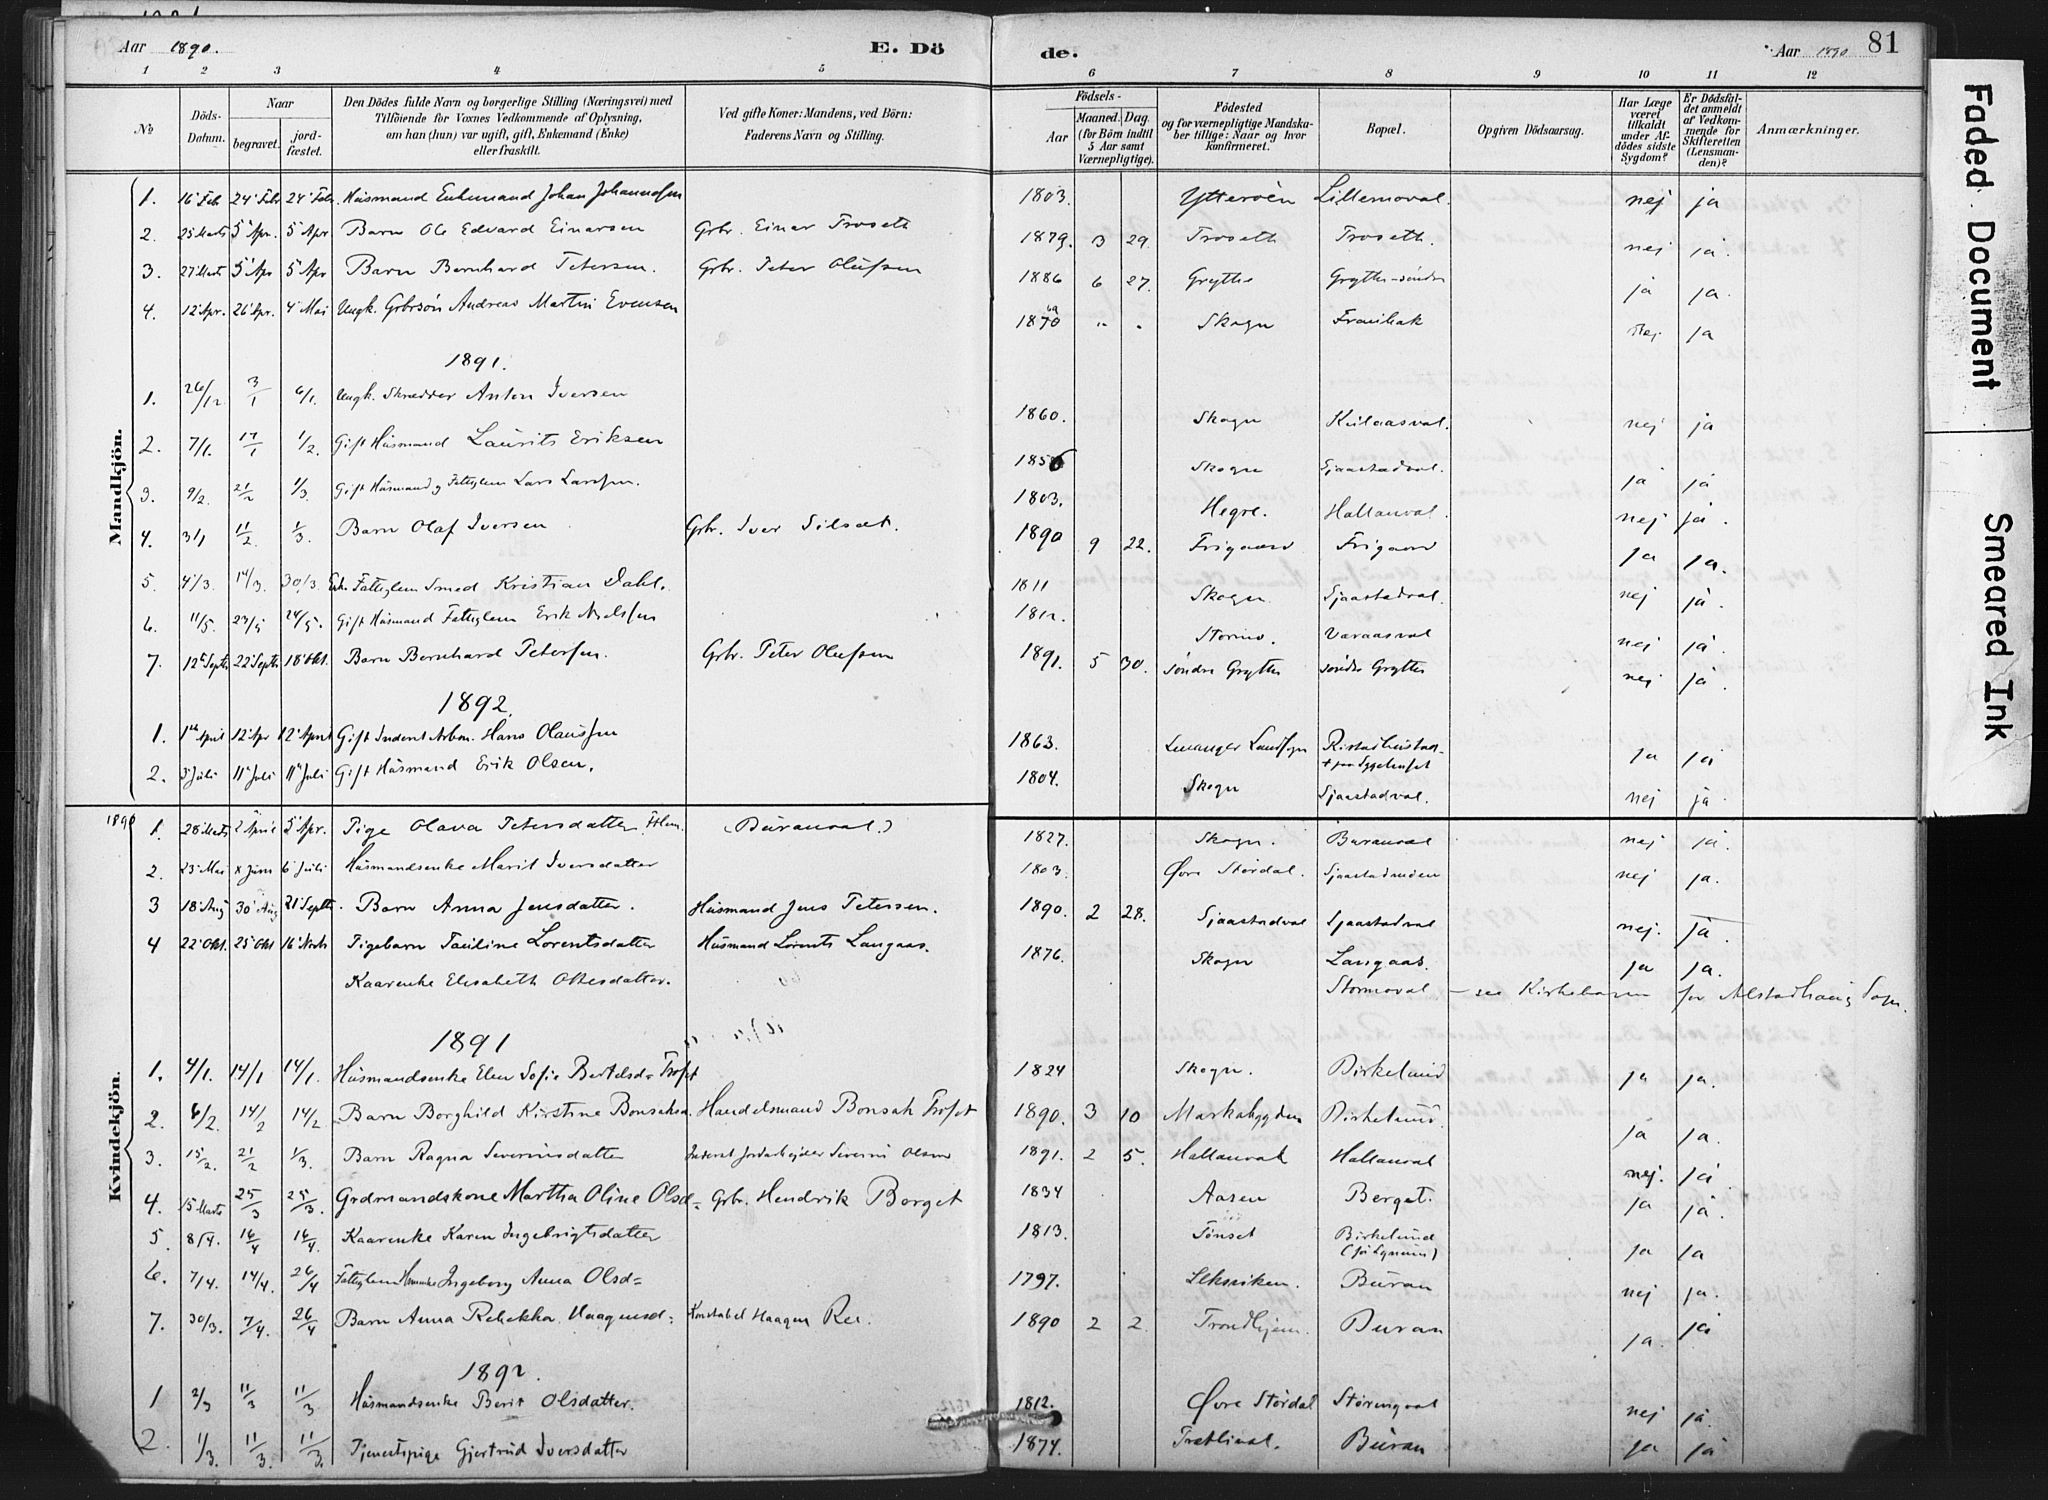 Aar 1890. E. Dö de. Aar 1890 81
1 2 3 4 5 6 7 8 9 10 11 12
№ Döds-Datum. Naar begravet. jordfæstet. Den Dödes fulde Navn og borgerlige Stilling (Næringsvei) med Tilföiende for Voxnes Vedkommende af Oplysning, om han (hun) var ugift, gift, Enkemand (Enke) eller fraskilt. Ved gifte Koner: Mandens, ved Börn: Faderens Navn og Stilling. Födsels- Aar Maaned. Dag. (for Börn indtil 5 Aar samt Værnepligtige). Födested og for værnepligtige Mandskaber tillige: Naar og hvor konfirmeret. Bopæl. Opgiven Dödsaarsag. Har Læge været tilkaldt under Afdödes sidste Sygdom? Er Dödsfaldet anmeldt af Vedkommende for Skifteretten (Lensmanden)? Anmærkninger.
Mandkjön.
1. 16 Feb 24 Feb 24 Feb. Husmand Enkemand Johan Johannesen 1803. Ytterøen Lillemoval. nej ja
2. 25 Marts 5 Apr. 5 Apr Barn Ole Edvard Einarsen Grbr. Einar Troseth 1879. 3 29. Troseth Troseth. nej ja.
3. 27 Marts 5 Apr 5 Apr Barn Bernhard Petersen. Grbr. Peter Olufsen 1886 6 27. Grytte Grytte-søndre ja ja.
4. 12 Apr. 26 Apr. 4 Mai Ungk. Grbrsøn Andreas Martin Evensen 1870 " " Skogn nej ja
1891.
1. 26/12 3/1 6/1. Ungk. Skrædder Anton Iversen 1860. Skogn nej ja
2. 7/1. 17/1 1/2. Gift Husmand Laurits Eriksen 1856 Skogn Sjaastadval. ja ja
3. 9/2. 21/2 1/3. Gift Husmand og Fattiglem Lars Larssen. 1803. Hegre. Hallanval. nej ja.
4. 3/1 11/2 1/3. Barn Olaf Iversen Grbr. Iver 1890 9 22. Frigaard Frigaard ja ja.
5. 4/3. 14/3. 30/3. Enk. Fattiglem Smed Kristian Dahl. 1811 Skogn Sjaastadval. nej ja.
6. 11/5. 24/5 24/5. Gift Husmand Fattiglem Erik 1812. Varaasval nej ja.
7. 12 Septr 22 Septr 18 Okt. Barn Bernhard Petersen. Grbr. Peter Olufsen 1891. 5 30. søndre Grytte søndre Grytte nej ja.
1892.
1. 1ste April 12 Apr 12 April Gift Inderst Arbm. Hans Olaussen 1863. Levanger Landsogn + paa Sygehuset ja ja
2. 5 Juli 11 Juli 11 Juli Gift Husmand Erik Olsen. 1804. Skogn Sjaastadval. nej ja.
Kvindekjön.
1890 1. 28 Marts 2 April 5 Apr. Pige Olava Petersdatter (Buranval.) 1827. Skogn. Buranval nej ja.
2. 23 Mai 8 Juni 6 Juli Husmandsenke Marit Iversdatter 1803. Øvre Størdal. Sjaastadmoen nej ja.
3 18 Aug 30 Aug 21 Septbr. Barn Anna Jensdatter. Husmand Jens Petersen. 1890. 2 28. Sjaastadval Sjaastadval nej. ja.
4 22 Okt. 25 Okt 16 Novb Pigebarn Pauline Lorentsdatter Husmand Lorents Langaas. 1876. Skogn Langaas. ja ja.
Kaarenke Elisabeth Ottesdatter. Stormoval – see Kirkebogen for Alstadhaug Sogn.
1891
1. 4/1. 14/1 14/1. Husmandsenke Elen Sofie Bertelsd= 1824 Skogn. Birkelund ja ja.
2. 6/2. 14/2 14/2 Barn Borghild Kirstine Bonsaksd. Handelsmand Bonsak 1890. 3 10 Markabygden Birkelund ja ja.
3. 15/2. 21/2 1/3. Barn Ragna Severinsdatter Inderst Jordarbejder Severin Olsen 1891. 2 5. Hallanval Hallanval nej. ja.
4. 15 Marts 25/3 25/3. Grdmandskone Martha Oline Olsd= Grbr. Hendrik Berget 1834 Aasen Berget. ja ja.
5. 8/4. 16/4 16/4. Kaarenke Karen Ingebrigtsdatter 1813. Tønset Birkelund ja ja
6. 7/4. 14/4. 26/4 Fattiglem Ingeborg Anna Olsd= 1797. Leksviken. Buran nej ja.
7. 30/3. 7/4. 26/4 Barn Anna Rebekka Haagensd= Konstabel Haagen Ree. 1890 2 2. Trondhjem. Buran ja. ja
1892.
1 2/3 11/3 11/3 Husmandsenke Berit Olsdatter. 1812. Øvre Stördal nej ja.
2. 1/3. 11/3. 11/3. Tjenestepige Gjertrud Iversdatter 1874. Buran ja ja
Faded Document
Smeared Ink